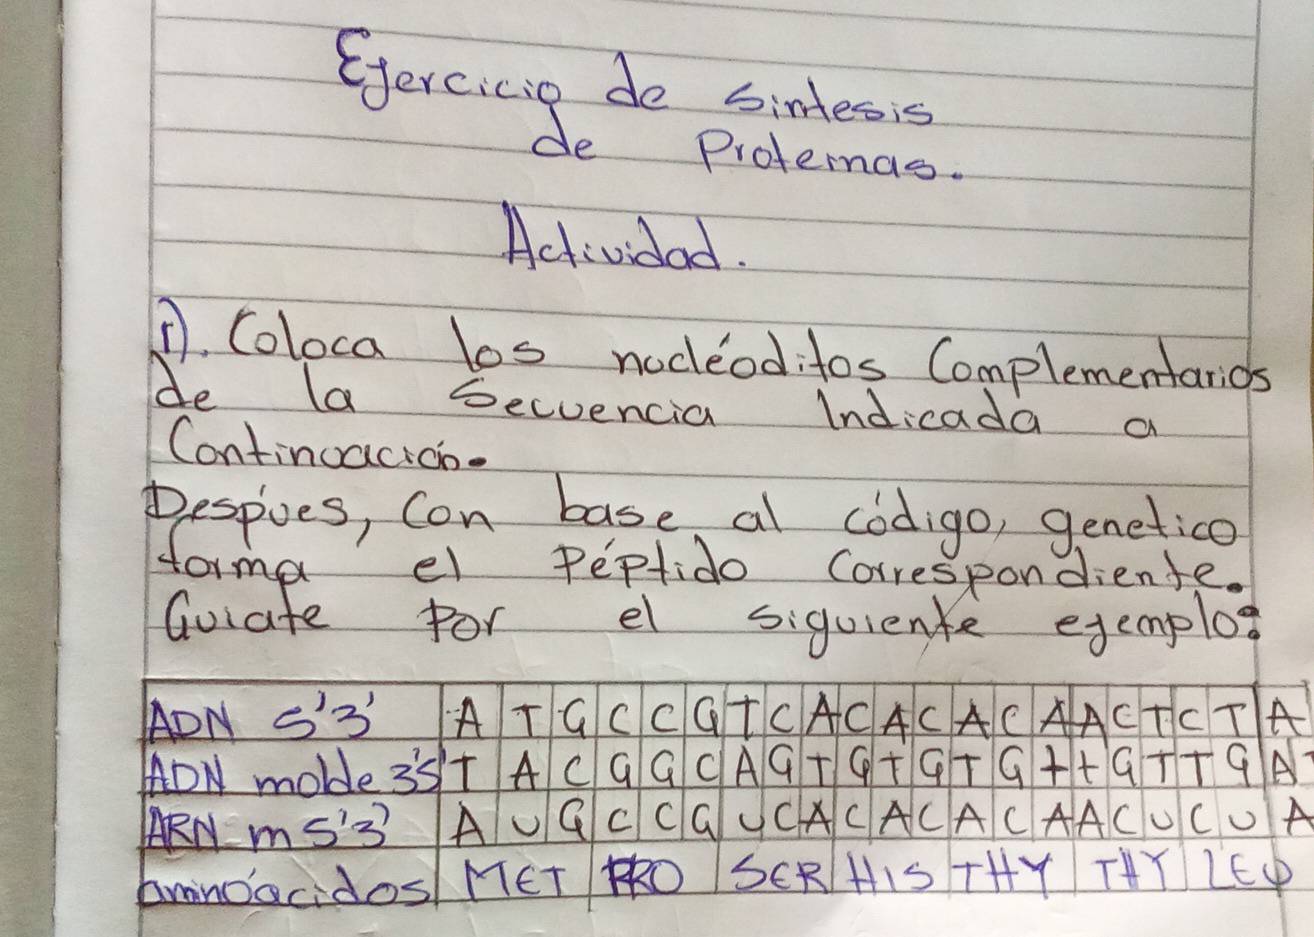 Ejercicio de sintesis
de Proteinas.
Actividad.
1). Coloca los nucléoditos Complementarios
de la Secuencia Indicada a
Continuación.
Despúes, Con base al código, genetico
forma el Péptido Correspondiente.
Guiate Por el siguiente ejemplo:
ADN 5'3' A T G C C G T C A C A C A C A A C T C T A
ADN molde 3'5' T A C G G C A G T G T G T G t t G T T G A T
ARN m 5'3' A U G C C G U C A C A C A C A A C U C U A
aminoácidos MET PRO SER HIS THY THY LEU